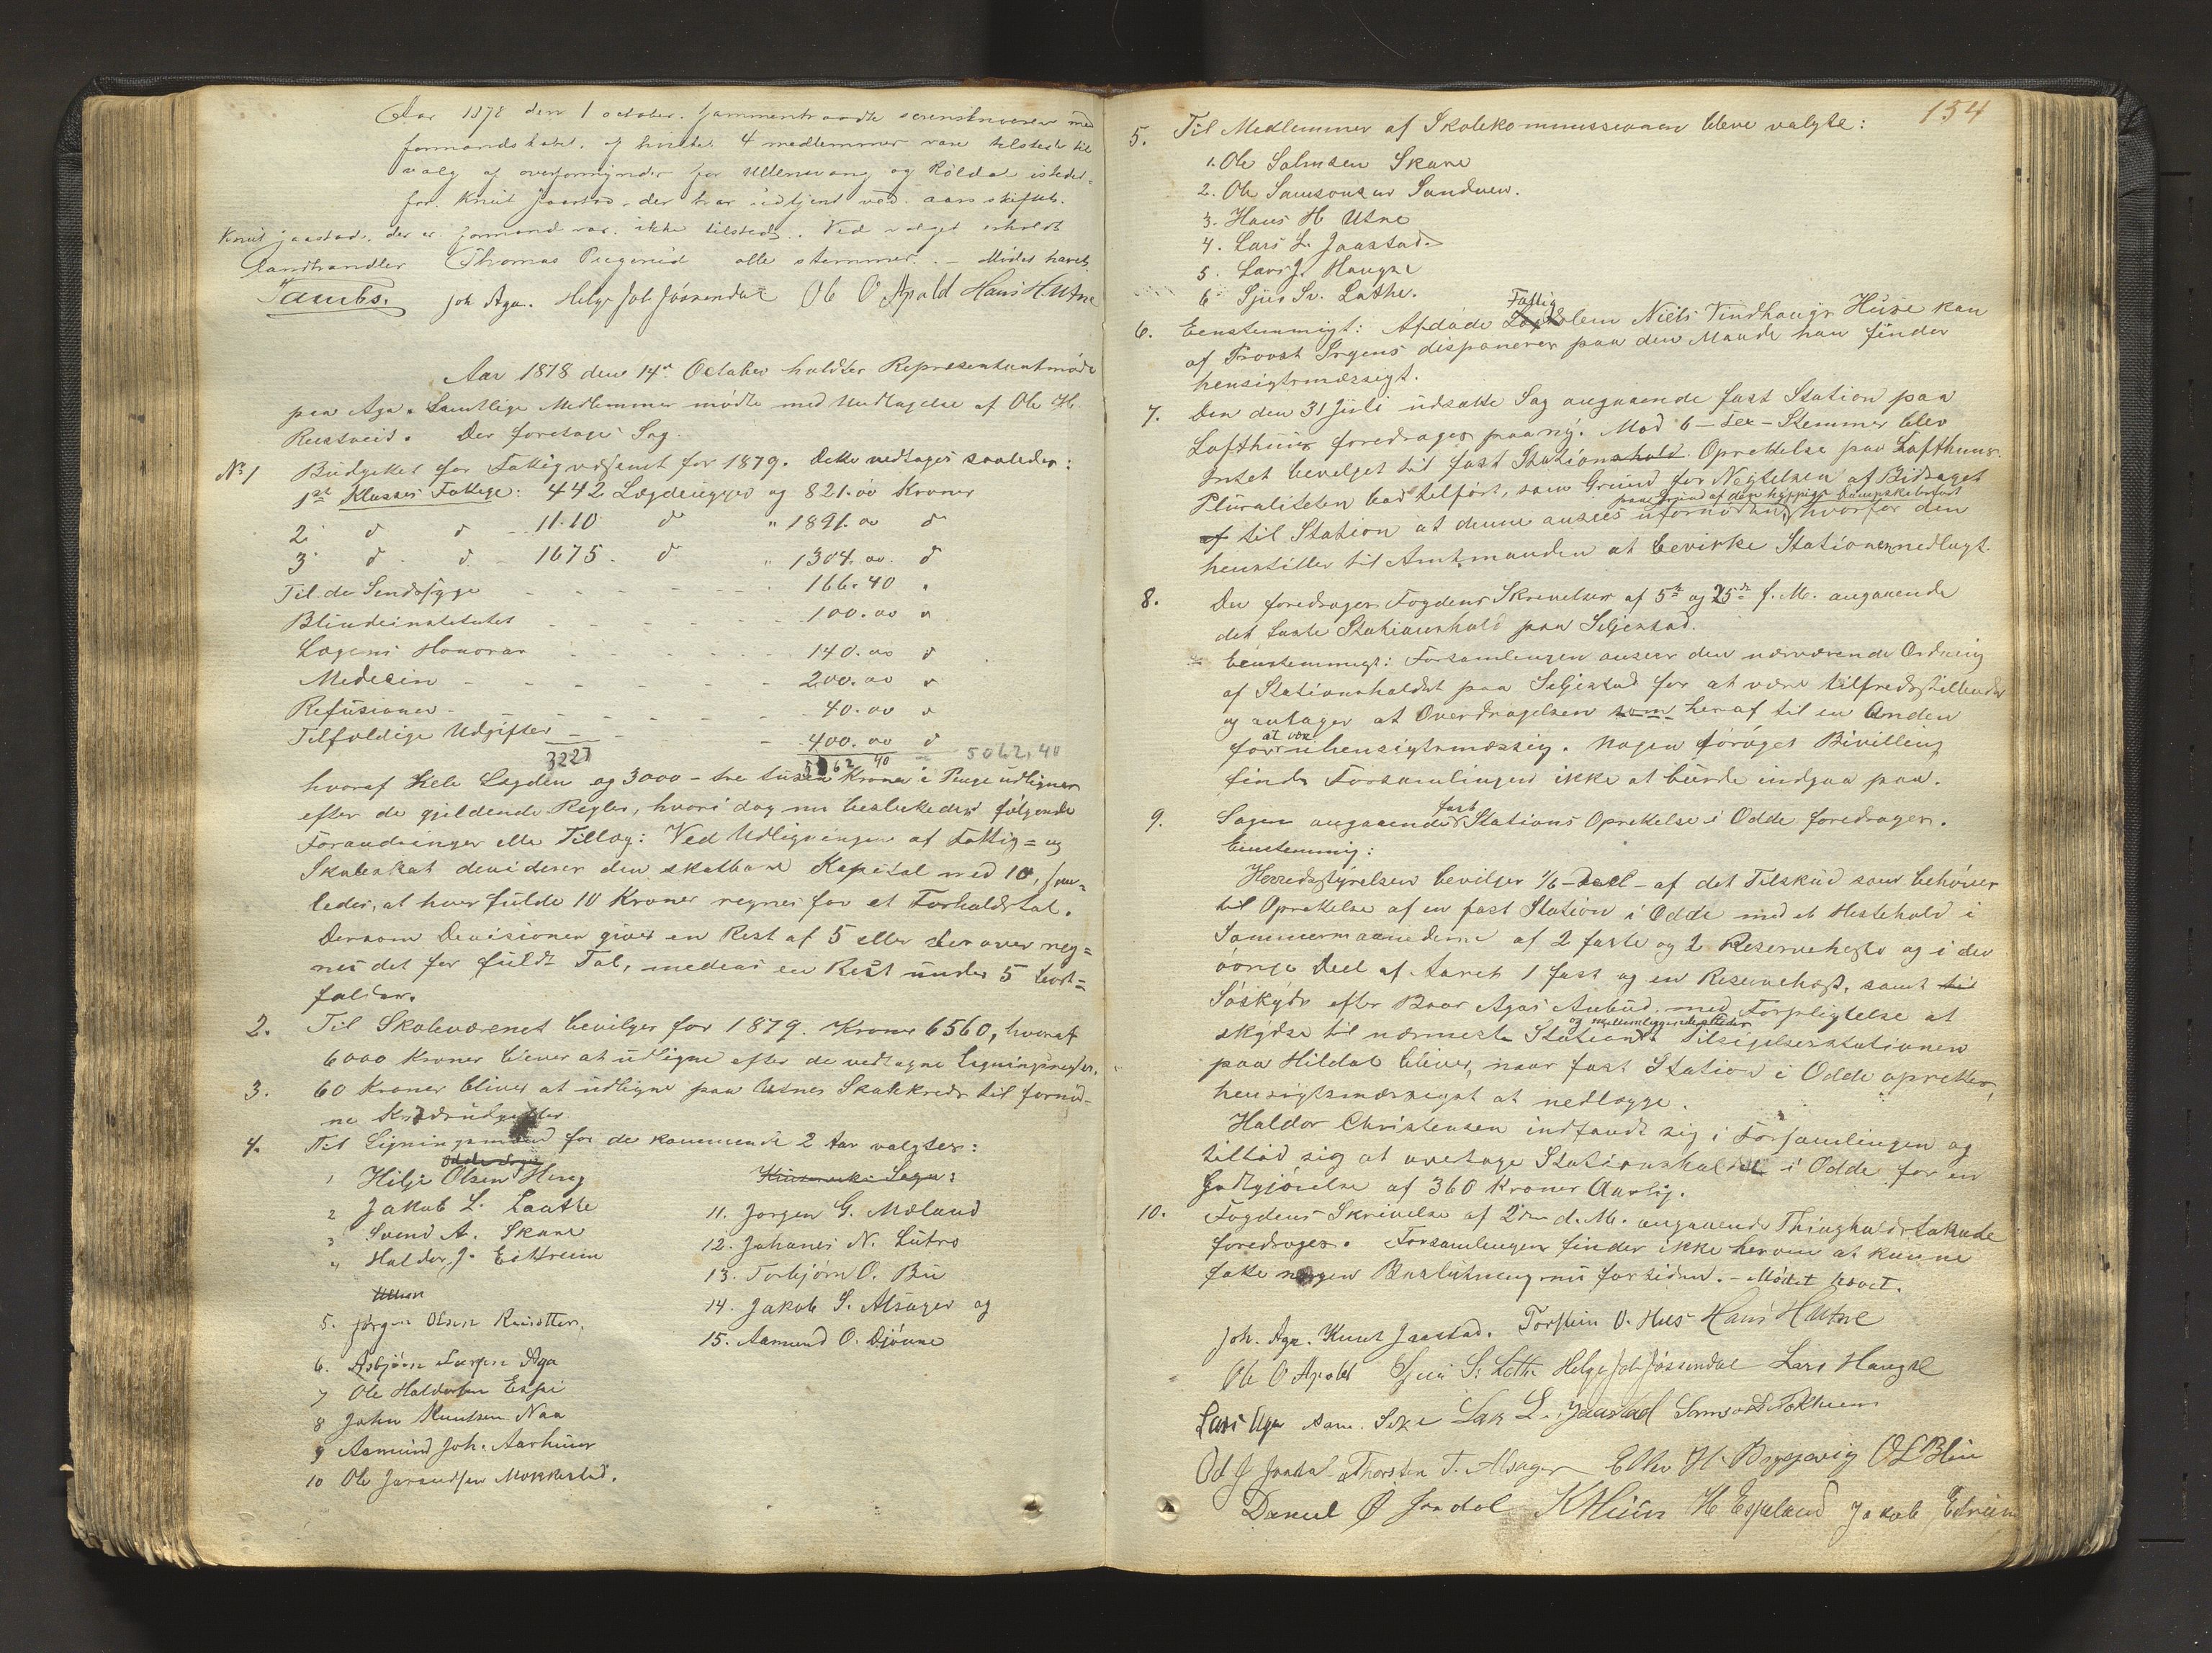 Aar 1878 den 1 october. Sammentraadte sorenskriveren med
formandskabet, af hvilke 4 medlemmer vare tilstede til
valg af overformynder for Ullensvang og Röldal istedet-
for Knut Jaastad, der har udtjent ved aars skiftet.
Knut Jaastad, der er formand var ikke tilstede. Ved valget erholdt
landhandler Thomas alle stemmer. – Mödet hævet.
Joh Aga. Helge Joh Jösendal Ole O Apold Hans H Utne
Aar 1878 den 14de October holdtes Repræsentantmöde
paa Aga. Samtlige Medlemmer mödte med Undtagelse af Ole H.
Reestveit. Der foretoges Sag
No 1 Budgettet for Fattigvæsenet for 1879. Dette vedtages saaledes:
1ste Klasses Fattige: 442 Lægdeuger og 821.00 Kroner
2 d d - 1110 d " 1891.00 d
3 d d - 1675 d " 1304.00 d
Til de Sindssyge - - - 166.40 "
Blindeinstitutet - - - 100.00 "
Lægens Honorar - - - 140.00 d
Medicin - - - 200.00 d
Refusioner - - - 40.00 d
Tilfældige Udgifter - - - 400.00 d
3227 5062 40 5062,40
hvoraf Hele Lægden og 3000 – tre tusen Kroner i Penge udlignes
efter de gjeldende Regler, hvori dog nu besluttedes følgende
Forandringer eller Tillæg: Ved Udligningen af Fattig= og
Skoleskat devideres den skatbare Kapital med 10, saa=
ledes, at hver fulde 10 Kroner regnes for et Forholdstal.
Dersom Devisionen giver en Rest af 5 eller derover reg=
nes det for fuldt Tal, medens en Rest under 5 bort=
falder.
2. Til Skolevæsenet bevilges for 1879. Kroner 6560, hvoraf
6000 Kroner bliver at udligne efter de vedtagne Ligningsregler.
3. 60 Kroner bliver at udligne paa Utnes Skolekreds til fornöd-
ne Kredsudgifter
4. Til Ligningsmænd for de kommende 2 Aar valgtes:
Odde Sogn
1 Helge Olsen Hereg
2 Jakob L. Laathe
3 Svend A. Skare
4 Haldor J. Eitrheim
Ullens
5. Jørgen Olsen Reisetter.
6. Asbjørn Larsen Aga
7 Ole Haldorsen Espe
8 John Knutsen Naa
9 Aamund Joh. Aarhuus
10 Ole Jørundsen Mokkestad.
Kinservik Sogn:
11. Jørgen G. Mæland
12. Johanes N. Lutro
13. Torbjørn O. Bu
14. Jakob S. Alsager og
15. Aamund O. Djönne
154
5. Til Medlemmer af Skolekommissionen bleve valgte:
1. Ole Salmsen Skare
2. Ole Samsonsen Sandven.
3. Hans H. Utne
4. Lars L. Jaastad.
5. Lars J. Haugse
6 Sjur Sv. Lothe.
Fattig
6. Eenstemmigt: Afdøde Lægdslem Niels Vindhaugs Huse kan
af Provst Irgens disponeres paa den Maade han finder
hensigtsmæssigt.
7. Den den 31 Juli udsatte Sag angaaende fast Station paa
Lofthuus foredrages paany. Mod 6 – sex – Stemmer blev
Intet bevilget til fast Stationshold Oprettelse paa Lofthuus.
Pluraliteten bad tilført, som Grund for Negtelsen af Bidraget
paa Grund af den hyppige Dampskibsfart
af til Station at denne ansees ufornöden, hvorfor den
henstiller til Amtmanden at bevirke Stationen nedlagt.
8. Der foredrages Fogdens Skrivelser af 5te og 25de f. M. angaaende
det faste Stationshold paa Seljestad.
Eenstemmigt: Forsamlingen anseer den nærværende Ordning
af Stationsholdet paa Seljestad for at være tilfredsstillende
og antager at Overdragelsen som heraf til en Anden
at være
for uhensigtsmæssig. Nogen forøget Bevilling
finder Forsamlingen ikke at burde indgaa paa.
9. Sagen angaaende fast Stations Oprettelse i Odde foredrages.
Eenstemmig:
Herredsstyrelsen bevilger 1/6 – Deel – af det Tilskud som behøves
til Oprettelse af en fast Station i Odde med et Hestehold i
Sommermaanederne af 2 faste og 2 Reserveheste og i den
övrige Deel af Aaret 1 fast og en Reservehest, samt til
Söskyds efter Baar Agas Anbud, med Forpligtelse at
og mellemliggende Steder
skydse til nærmeste Station. Tilsigelsesstationen
paa Hildal bliver, naar fast Station i Odde oprettes,
hensigtsmæssigst at nedlægge.
Haldor Christensen indfandt sig i Forsamlingen og
tilböd sig at overtage Stationsholdet i Odde for en
Godtgjörelse af 360 Kroner Aarlig.
10. Fogdens Skrivelse af 2den d. M. angaaende Thingholdslokale
foredroges. Forsamlingen finder ikke herom at kunne
fatte nogen Beslutning nu for tiden. – Mödet hævet.
Joh. Aga. Knut Jaastad. Torstein O. Hus Hans H Utne
Ole O Apold Sjur S. Lothe Helge Joh Jösendal Lars Haugse
Lars Aga Aam. Sexe Lars L. Jaastad Samson Tokheim
Od J Jordal Thorsten T. Alsager H. OL Blie
Daniel Ø Jordal K Huus H Espeland Jakob Eitreim